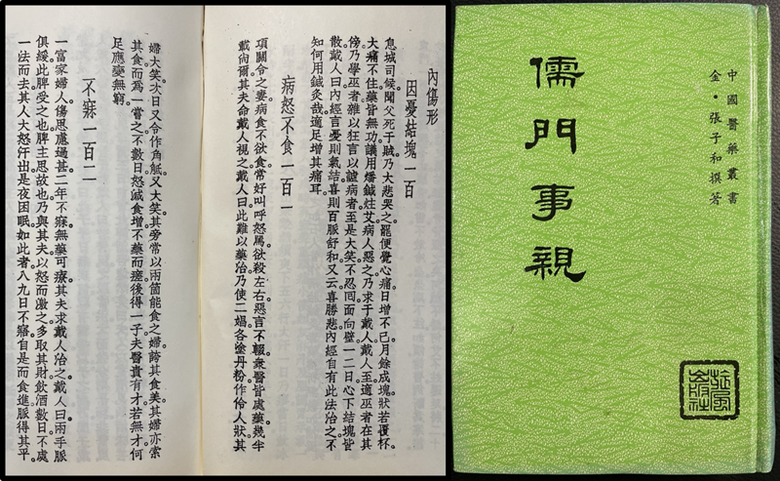 內傷形
因憂結塊一百
息城司候聞父死于賊乃大悲哭之罷便覺心痛日增不已月餘成塊狀若覆杯。
大痛不住藥皆無功議用燔鍼炷艾病人惡之乃求于戴人戴人至適巫者在其
傍乃學巫者雜以狂言以謔病者至是大笑不忍囘面向壁一二日心下結塊皆
散戴人曰內經言憂則氣結喜則百脈舒和又云喜勝悲內經自有此法治之不
知何用鍼灸哉適足增其痛耳
病怒不食一百一
項關令之妻病食不欲食常好叫呼怒罵欲殺左右惡言不輟衆醫皆處藥幾半
載尙爾其夫命戴人視之戴人曰此難以藥治乃使二娼各塗丹粉作伶人狀其
婦大笑次日又令作角觝又大笑其旁常以兩箇能食之婦誇其食美其婦亦索
其食而爲一嘗之不數日怒減食增不藥而瘥後得一子夫醫貴有才若無才何
足應變無窮
不寐一百二
一富家婦人傷思慮過甚二年不寐無藥可療其夫求戴人治之戴人曰兩手脈
俱緩此脾受之也脾主思故也乃與其夫以怒而激之多取其財飲酒數日不處
一法而去其人大怒汗出是夜困眠如此者八九日不寤自是而食進脈得其平。
中國醫藥叢書
金·張子和撰著
儒門事親